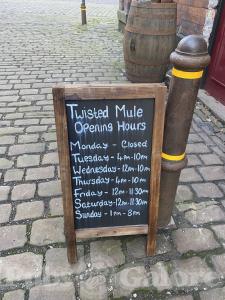 Twisted Mule
Opening Hours
Monday - Closed
Tuesday - 4m-10m
Wednesday - 12m-10m
Thursday - 4m-10m
Friday - 12m-11:30m
Saturday - 12m-11:30m
Sunday - 1m-8m